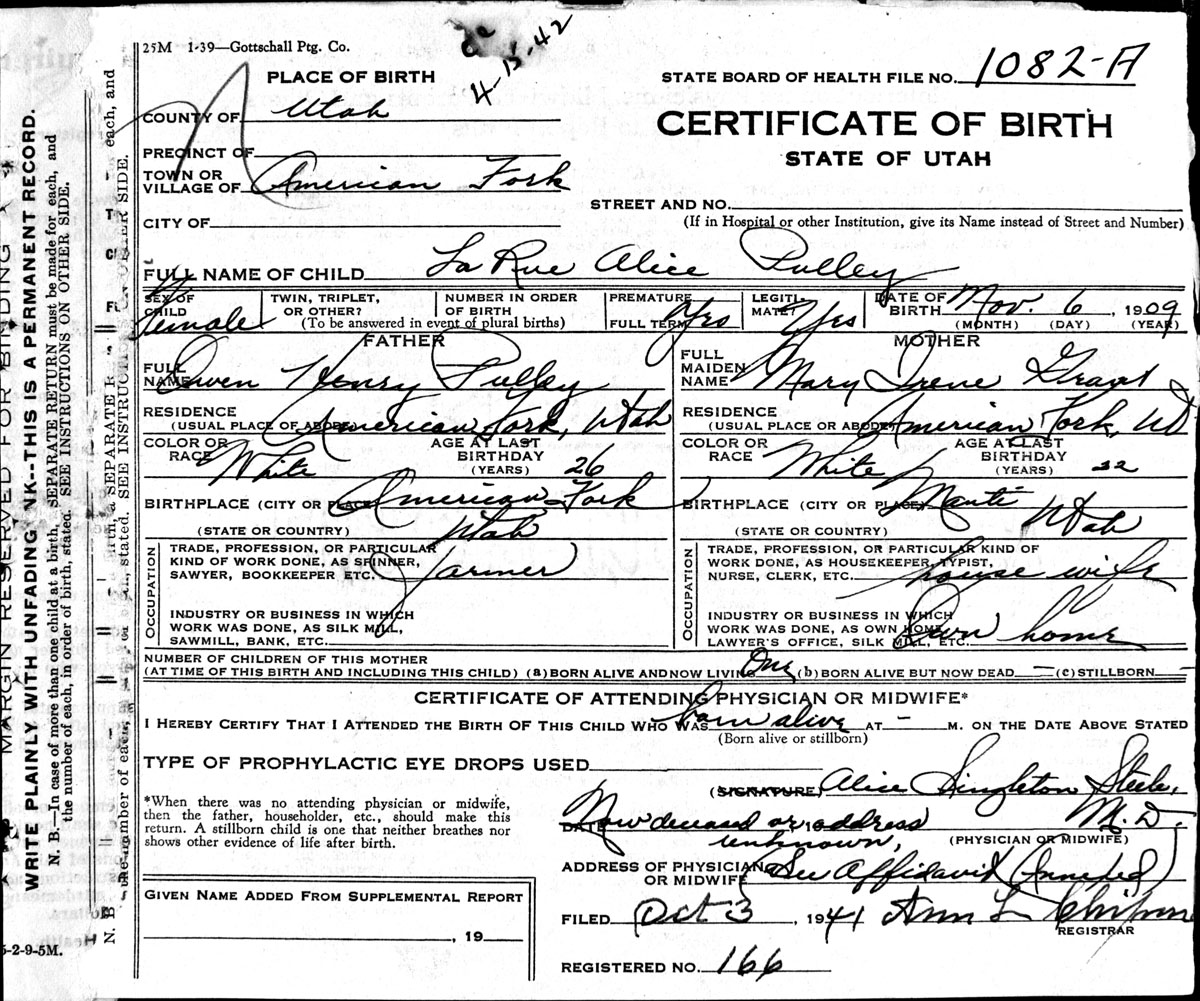 25M 1-39—Gottschall Ptg. Co.
4-15-42
PLACE OF BIRTH
STATE BOARD OF HEALTH FILE NO. 1082-A
COUNTY OF Utah
CERTIFICATE OF BIRTH
STATE OF UTAH
PRECINCT OF
TOWN OR VILLAGE OF American Fork
STREET AND NO.
(If in Hospital or other Institution, give its Name instead of Street and Number)
CITY OF
FULL NAME OF CHILD La Rue Alice Pulley
SEX OF CHILD Female
TWIN, TRIPLET, OR OTHER?
NUMBER IN ORDER OF BIRTH
(To be answered in event of plural births)
PREMATURE
FULL TERM Yes
LEGITIMATE? Yes
DATE OF BIRTH Nov. 6, 1909
(MONTH) (DAY) (YEAR)
FATHER
FULL NAME Owen Henry Pulley
RESIDENCE
(USUAL PLACE OF ABODE) American Fork, Utah
COLOR OR RACE White
AGE AT LAST BIRTHDAY (YEARS) 26
BIRTHPLACE (CITY OR PLACE) American Fork
(STATE OR COUNTRY) Utah
OCCUPATION
TRADE, PROFESSION, OR PARTICULAR
KIND OF WORK DONE, AS SPINNER,
SAWYER, BOOKKEEPER ETC. Farmer
INDUSTRY OR BUSINESS IN WHICH
WORK WAS DONE, AS SILK MILL,
SAWMILL, BANK, ETC.
MOTHER
FULL MAIDEN NAME Mary Irene Grant
RESIDENCE
(USUAL PLACE OR ABODE) American Fork, Ut
COLOR OR RACE White
AGE AT LAST BIRTHDAY (YEARS) 22
BIRTHPLACE (CITY OR PLACE) Manti
(STATE OR COUNTRY) Utah
OCCUPATION
TRADE, PROFESSION, OR PARTICULAR KIND OF
WORK DONE, AS HOUSEKEEPER, TYPIST,
NURSE, CLERK, ETC. house wife
INDUSTRY OR BUSINESS IN WHICH
WORK WAS DONE, AS OWN HOME,
LAWYER'S OFFICE, SILK MILL, ETC. Own home
NUMBER OF CHILDREN OF THIS MOTHER
(AT TIME OF THIS BIRTH AND INCLUDING THIS CHILD) (a) BORN ALIVE AND NOW LIVING One (b) BORN ALIVE BUT NOW DEAD — (c) STILLBORN —
CERTIFICATE OF ATTENDING PHYSICIAN OR MIDWIFE*
I HEREBY CERTIFY THAT I ATTENDED THE BIRTH OF THIS CHILD WHO WAS born alive AT - M. ON THE DATE ABOVE STATED
(Born alive or stillborn)
TYPE OF PROPHYLACTIC EYE DROPS USED
*When there was no attending physician or midwife,
then the father, householder, etc., should make this
return. A stillborn child is one that neither breathes nor
shows other evidence of life after birth.
(SIGNATURE) Alice Singleton Steele, M.D.
DATE 19 Now deceased or address unknown,
(PHYSICIAN OR MIDWIFE)
ADDRESS OF PHYSICIAN OR MIDWIFE See Affidavit (Annexed)
GIVEN NAME ADDED FROM SUPPLEMENTAL REPORT
, 19
FILED Oct 3, 1941 Ann L
REGISTRAR
REGISTERED NO. 166
MARGIN RESERVED FOR BINDING
WRITE PLAINLY WITH UNFADING INK--THIS IS A PERMANENT RECORD.
N. B.—In case of more than one child at a birth, SEPARATE RETURN must be made for each, and
the number of each, in order of birth, stated. SEE INSTRUCTIONS ON OTHER SIDE.
5-2-9-5M.